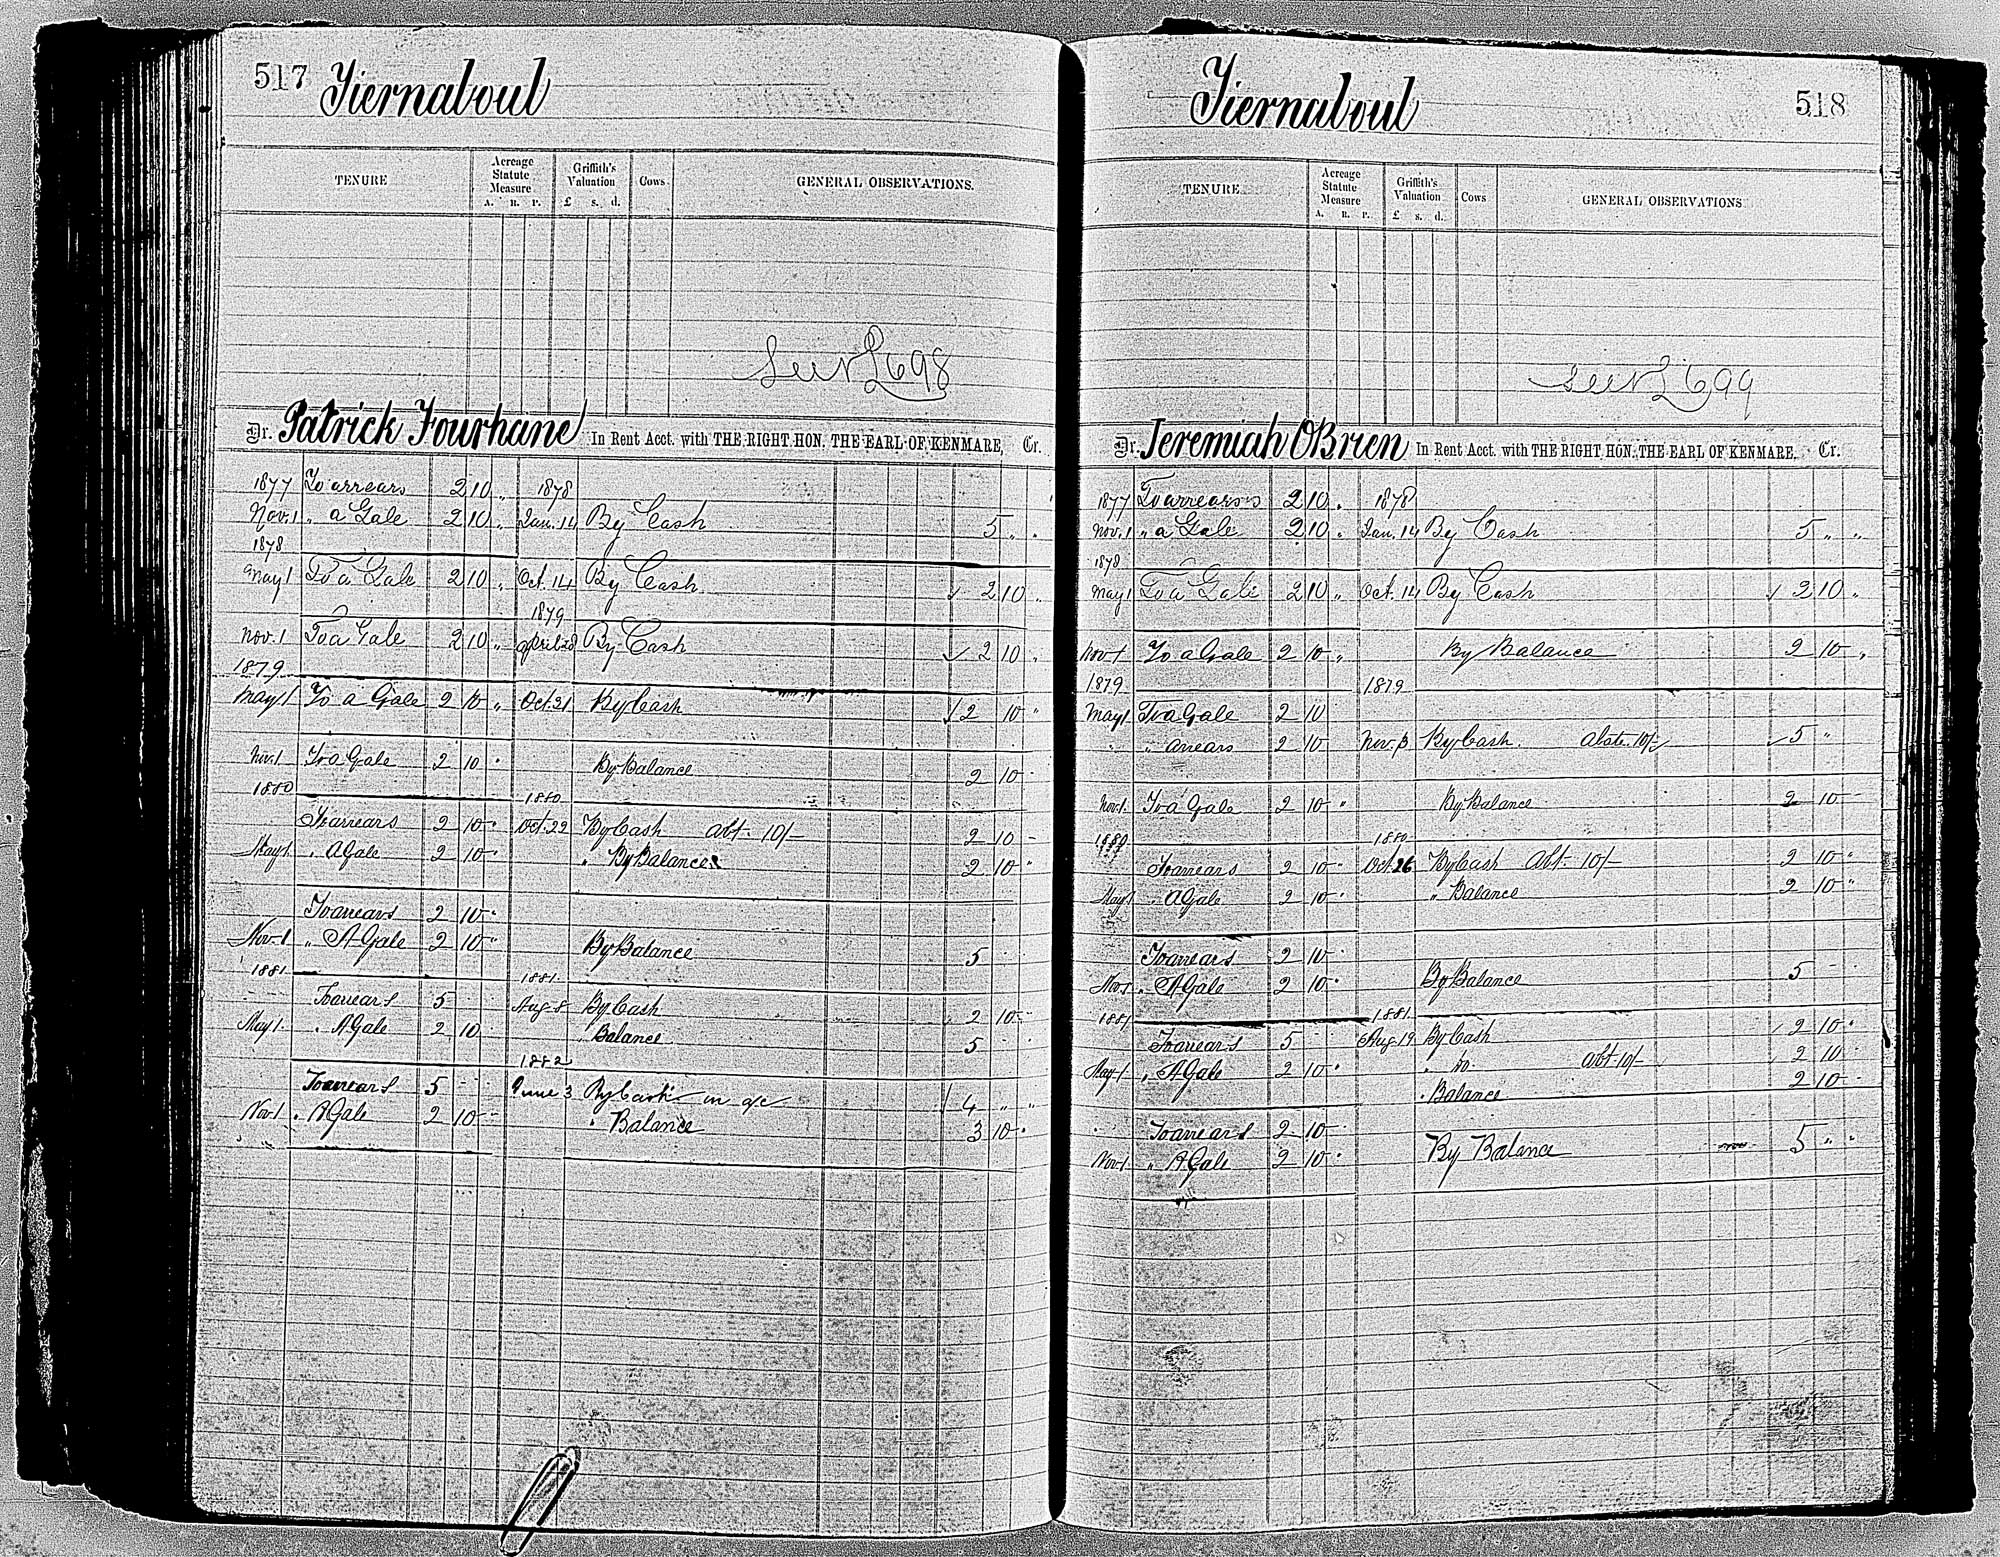 517 Tiernaboul
TENURE Acreage Statute Measure A. R. P. Griffith's Valuation £ s. d. Cows GENERAL OBSERVATIONS.
See N L 698
Dr. Patrick Fourhane In Rent Acct. with THE RIGHT HON. THE EARL OF KENMARE, Cr.
1877 To arrears 2 10 „ 1878
Nov. 1 „ a Gale 2 10 „ Jan. 14 By Cash 5 „ „
1878
May 1 To a Gale 2 10 „ Oct. 14 By Cash 2 10 „
1879
Nov. 1 To a Gale 2 10 „ April 28 By Cash 2 10 „
1879
May 1 To a Gale 2 10 „ Oct. 21 By Cash 2 10 „
Nov. 1 To a Gale 2 10 „ By Balance 2 10 -
1880 1880
To arrears 2 10 „ Oct. 22 By Cash abt. 10/- 2 10 -
May 1 „ A Gale 2 10 „ „ By Balance 2 10 „
To arrears 2 10 „
Nov. 1 „ A Gale 2 10 „ By Balance 5 - -
1881 1881
To arrears 5 - - Aug 8 By Cash 2 10 -
May 1. „ A Gale 2 10 „ Balance 5 - -
1882
To arrears 5 - - June 3 By Cash in a/c 4 „ „
Nov 1 „ A Gale 2 10 - „ Balance 3 10 „
Tiernaboul 518
TENURE Acreage Statute Measure A. R. P. Griffith's Valuation £ s. d. Cows GENERAL OBSERVATIONS
See N L 699
Dr. Jeremiah OBrien In Rent Acct. with THE RIGHT HON. THE EARL OF KENMARE, Cr.
1877 To arrears 2 10 „ 1878
Nov. 1 „ a Gale 2 10 „ Jan. 14 By Cash 5 „ „
1878
May 1 To a Gale 2 10 „ Oct. 14 By Cash 2 10 „
Nov 1 To a Gale 2 10 „ By Balance 2 10 „
1879 1879
May 1 To a Gale 2 10
„ „ arrears 2 10 Nov. By Cash. abate. 10/- 5 „
Nov. 1. To a Gale 2 10 „ By Balance 2 10 -
1880 1880
To arrears 2 10 „ Oct. 26 By Cash abt- 10/- 2 10 „
May 1 „ A Gale 2 10 „ „ Balance 2 10 „
To arrears 2 10 -
Nov 1 „ A Gale 2 10 „ By Balance 5 - -
1881 1881
To arrears 5 - - Aug 19. By Cash 2 10 „
May 1 „ A Gale 2 10 „ „ Do. abt 10/- 2 10 -
„ Balance 2 10 -
To arrears 2 10 -
Nov 1 „ A Gale 2 10 „ By Balance 5 „ „